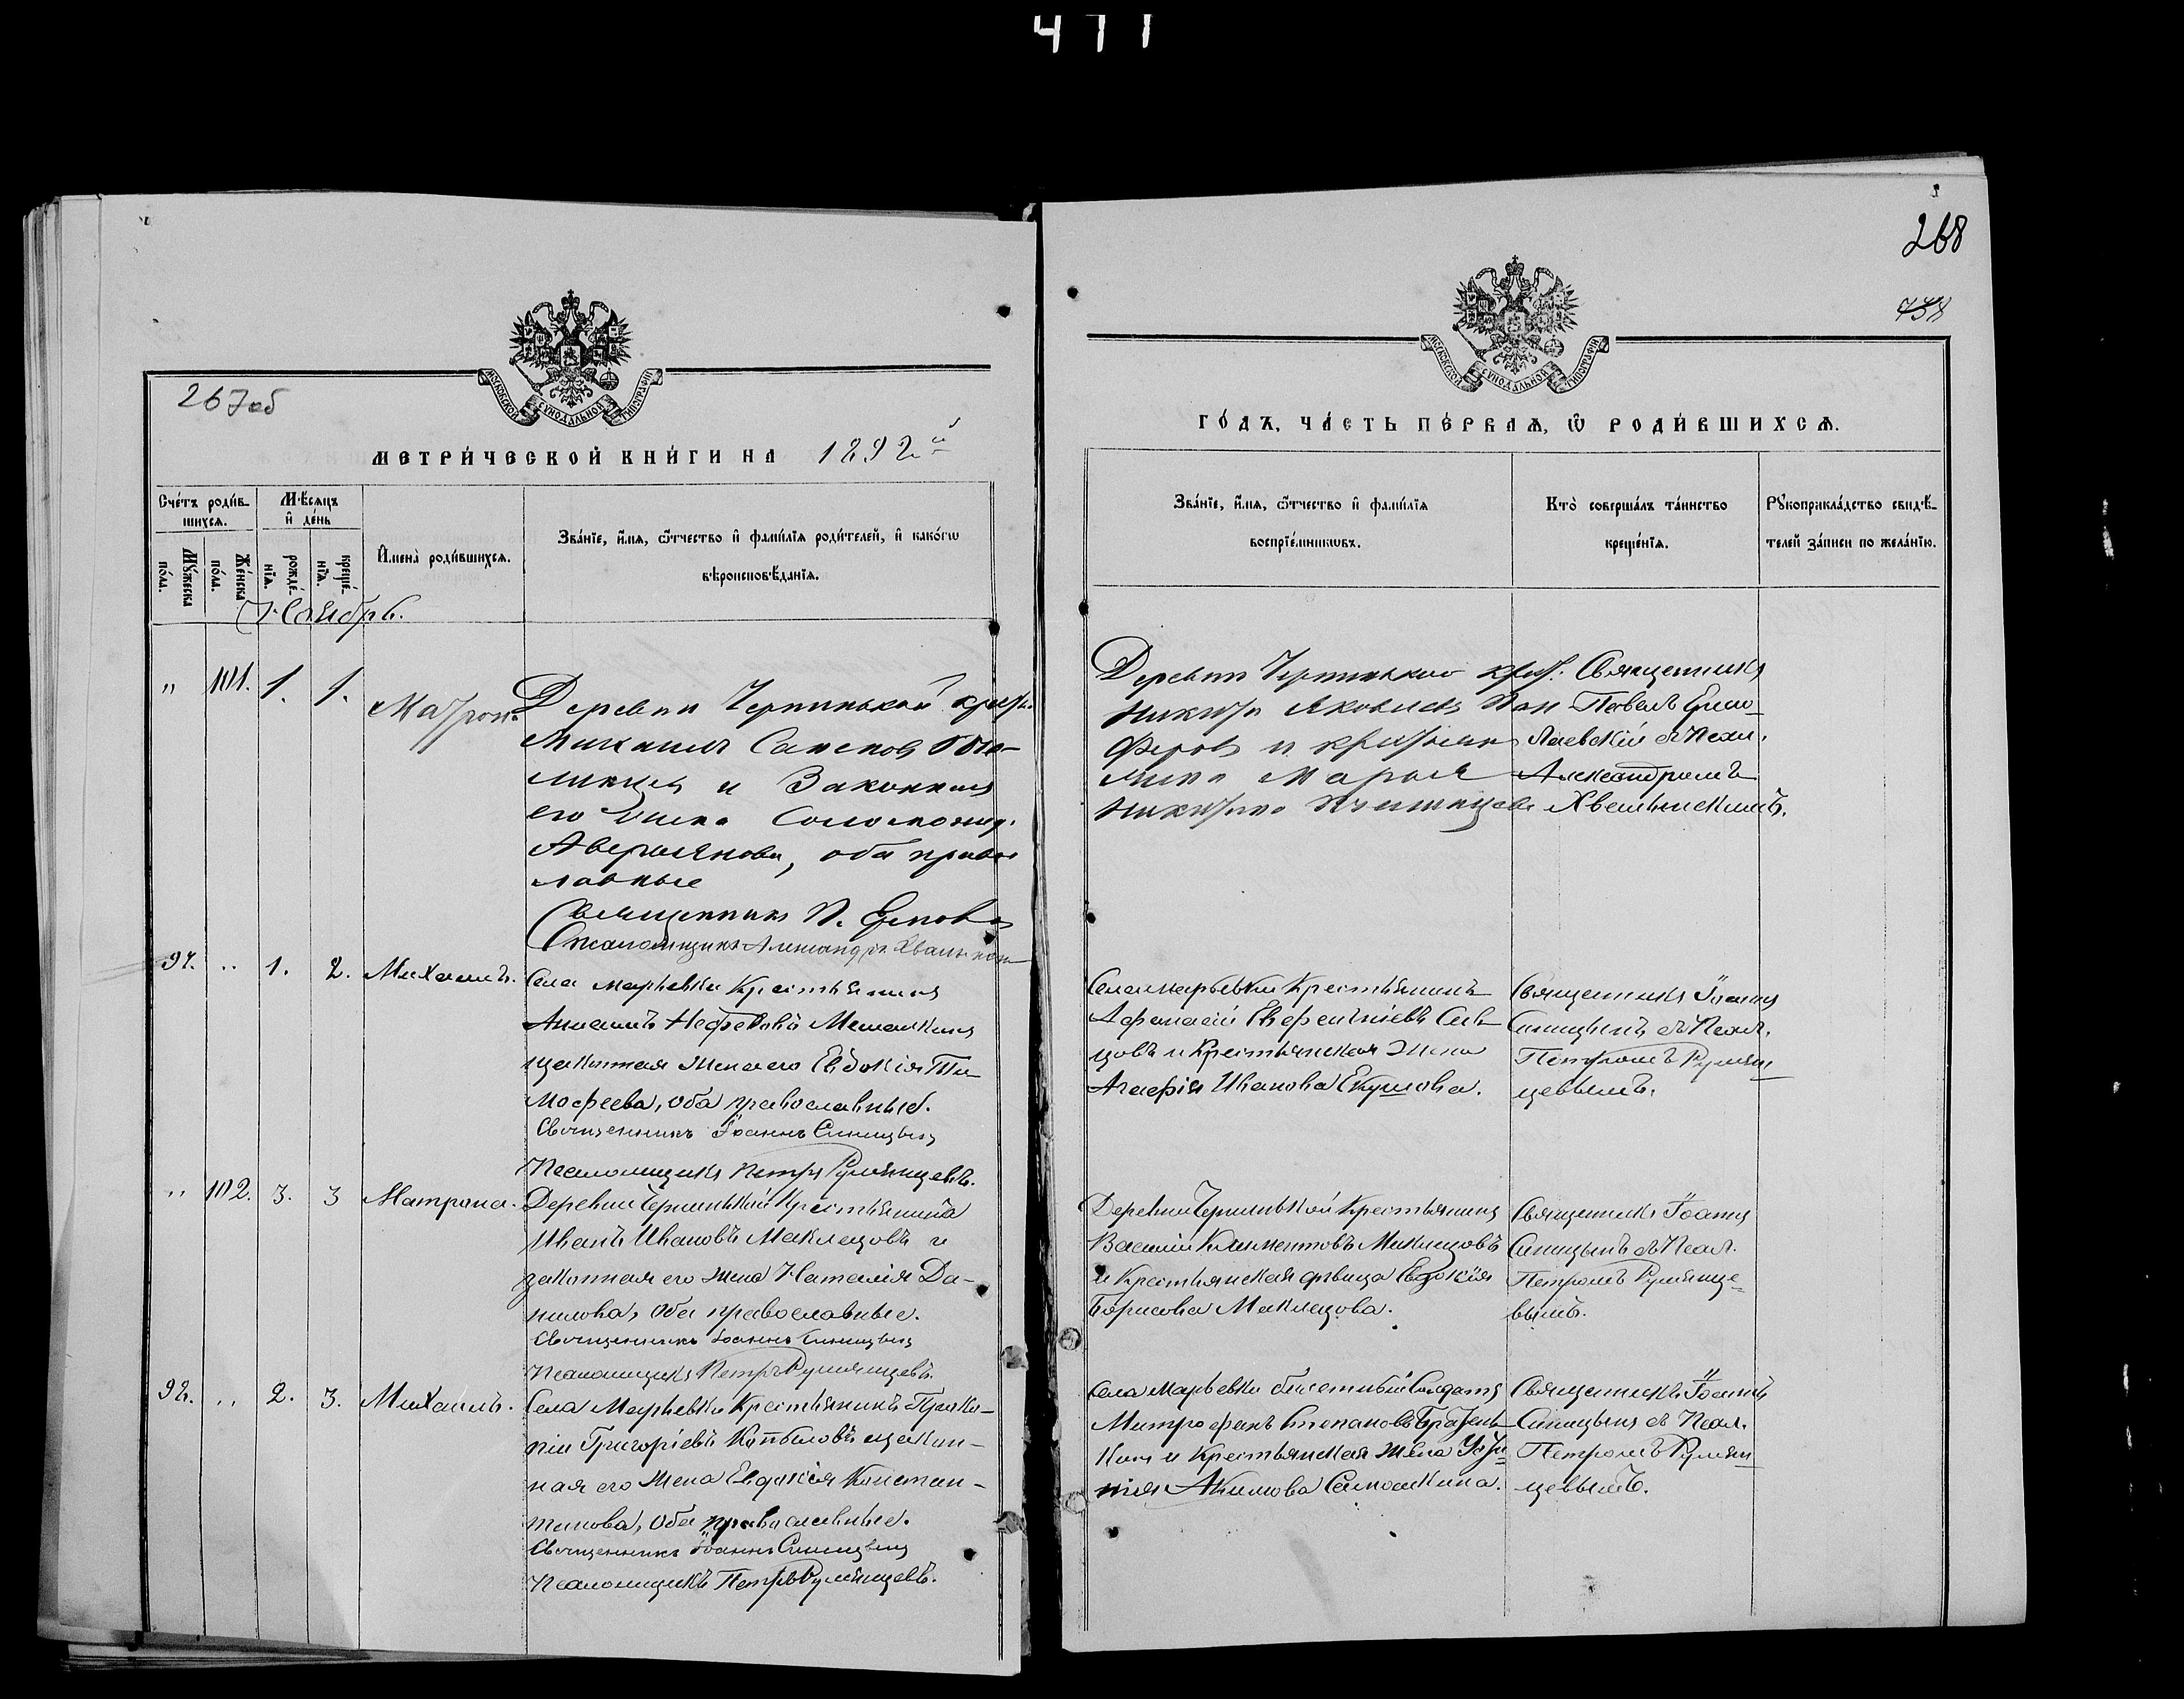 477
268
438
267об
МОСКОВСКОЙ СУНОДАЛЬНОЙ ТИПОГРАФІИ
МЕТРИ́ЧЕСКОЙ КНИ́ГИ НА 1892й
Сче́тъ роди́в-
шихся.
Мѣ́сяцъ
и҆ де́нь
Му́жеска
по́ла.
Же́нска
по́ла.
рожде́-
нїя.
креще́-
нїя.
И҆мена̀ роди́вшихся.
Зва́нїе, и҆́мя, ѻ҆́тчество и҆ фами́лїя роди́телей, и҆ како́гѡ
вѣроисповѣ́данїя.
Ноябрь.
" 101. 1. 1.
Деревни Чернинькой крест.
и Законная
его жена
Аверьянова, оба право
славные
Священникъ П.
Псаломщикъ Александръ
97. " 1. 2. Михаилъ. Села Марьевки Крестьянинъ
законная жена его Евдокія Ти-
мофеева, оба православные.
Священникъ Іоаннъ Синицынъ
Псаломщикъ Петръ Румянцевъ.
" 102. 3. 3 Матрона. Деревни Чернинькой Крестьянинъ
Иванъ Ивановъ Маклецовъ и
законная его жена Наталія Да-
нилова, оба православные.
Священникъ Іоаннъ Синицынъ
Псаломщикъ Петръ Румянцевъ.
98. " 2. 3. Михаилъ. Села Марьевки Крестьянинъ
Григорьевъ закон-
ная его жена Евдокія Констан-
тинова, оба православные.
Священникъ Іоаннъ Синицынъ
Псаломщикъ Петръ Румянцевъ.
МОСКОВСКОЙ СУНОДАЛЬНОЙ ТИПОГРАФІИ
ГО́ДЪ, ЧА́СТЬ ПЕ́РВАЯ, Ѡ҆ РОДИ́ВШИХСЯ.
Зва́нїе, и҆́мя, ѻ҆́тчество и҆ фами́лїя
воспрїе́мникѡвъ.
Кто̀ соверша́лъ та́инство
креще́нїя.
Рукоприкла́дство свидѣ́-
телей за́писи по жела́нїю.
Деревни Чернинькой крест.
Никита Яковлевъ
Марья
Никитина
Священникъ
Павелъ
съ Псал.
Александромъ
Хвалынскимъ.
Села Марьевки Крестьянинъ
Афанасій
и Крестьянская жена
Агафія Иванова
Священникъ Іоаннъ
Синицынъ съ Псал.
Петромъ Румян
цевымъ.
Деревни Чернинькой Крестьянинъ
Василій Климентовъ Маклецовъ
и Крестьянская дѣвица Евдокія
Борисова Маклецова.
Священникъ Іоаннъ
Синицынъ съ Псал.
Петромъ Румянце-
вымъ.
Села Марьевки Солдатъ
Митрофанъ Степановъ
и Крестьянская жена
Акимова Самошкина.
Священникъ Іоаннъ
Синицынъ съ Псал.
Петромъ Румян
цевымъ.